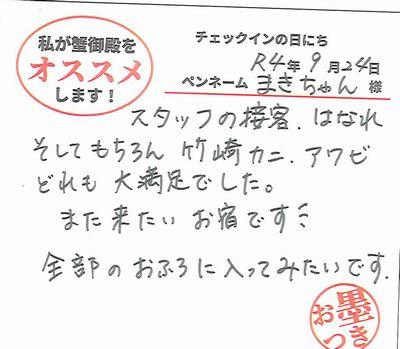 私が蟹御殿を
オススメ
します！
チェックインの日にち
R4年9月24日
ペンネーム まきちゃん 様
スタッフの接客、はなれ
そしてもちろん 竹崎カニ、アワビ
どれも 大満足でした。
また来たい お宿です
全部のおふろに入ってみたいです。
お墨つき